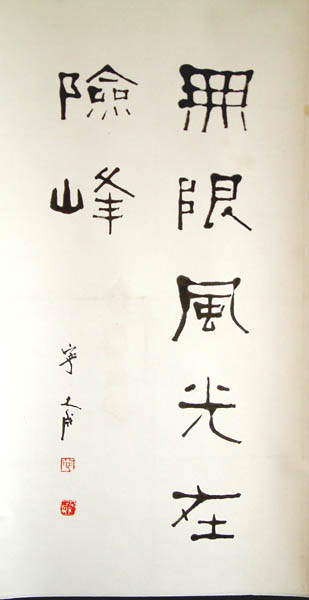 無限風光在
險峰
寧